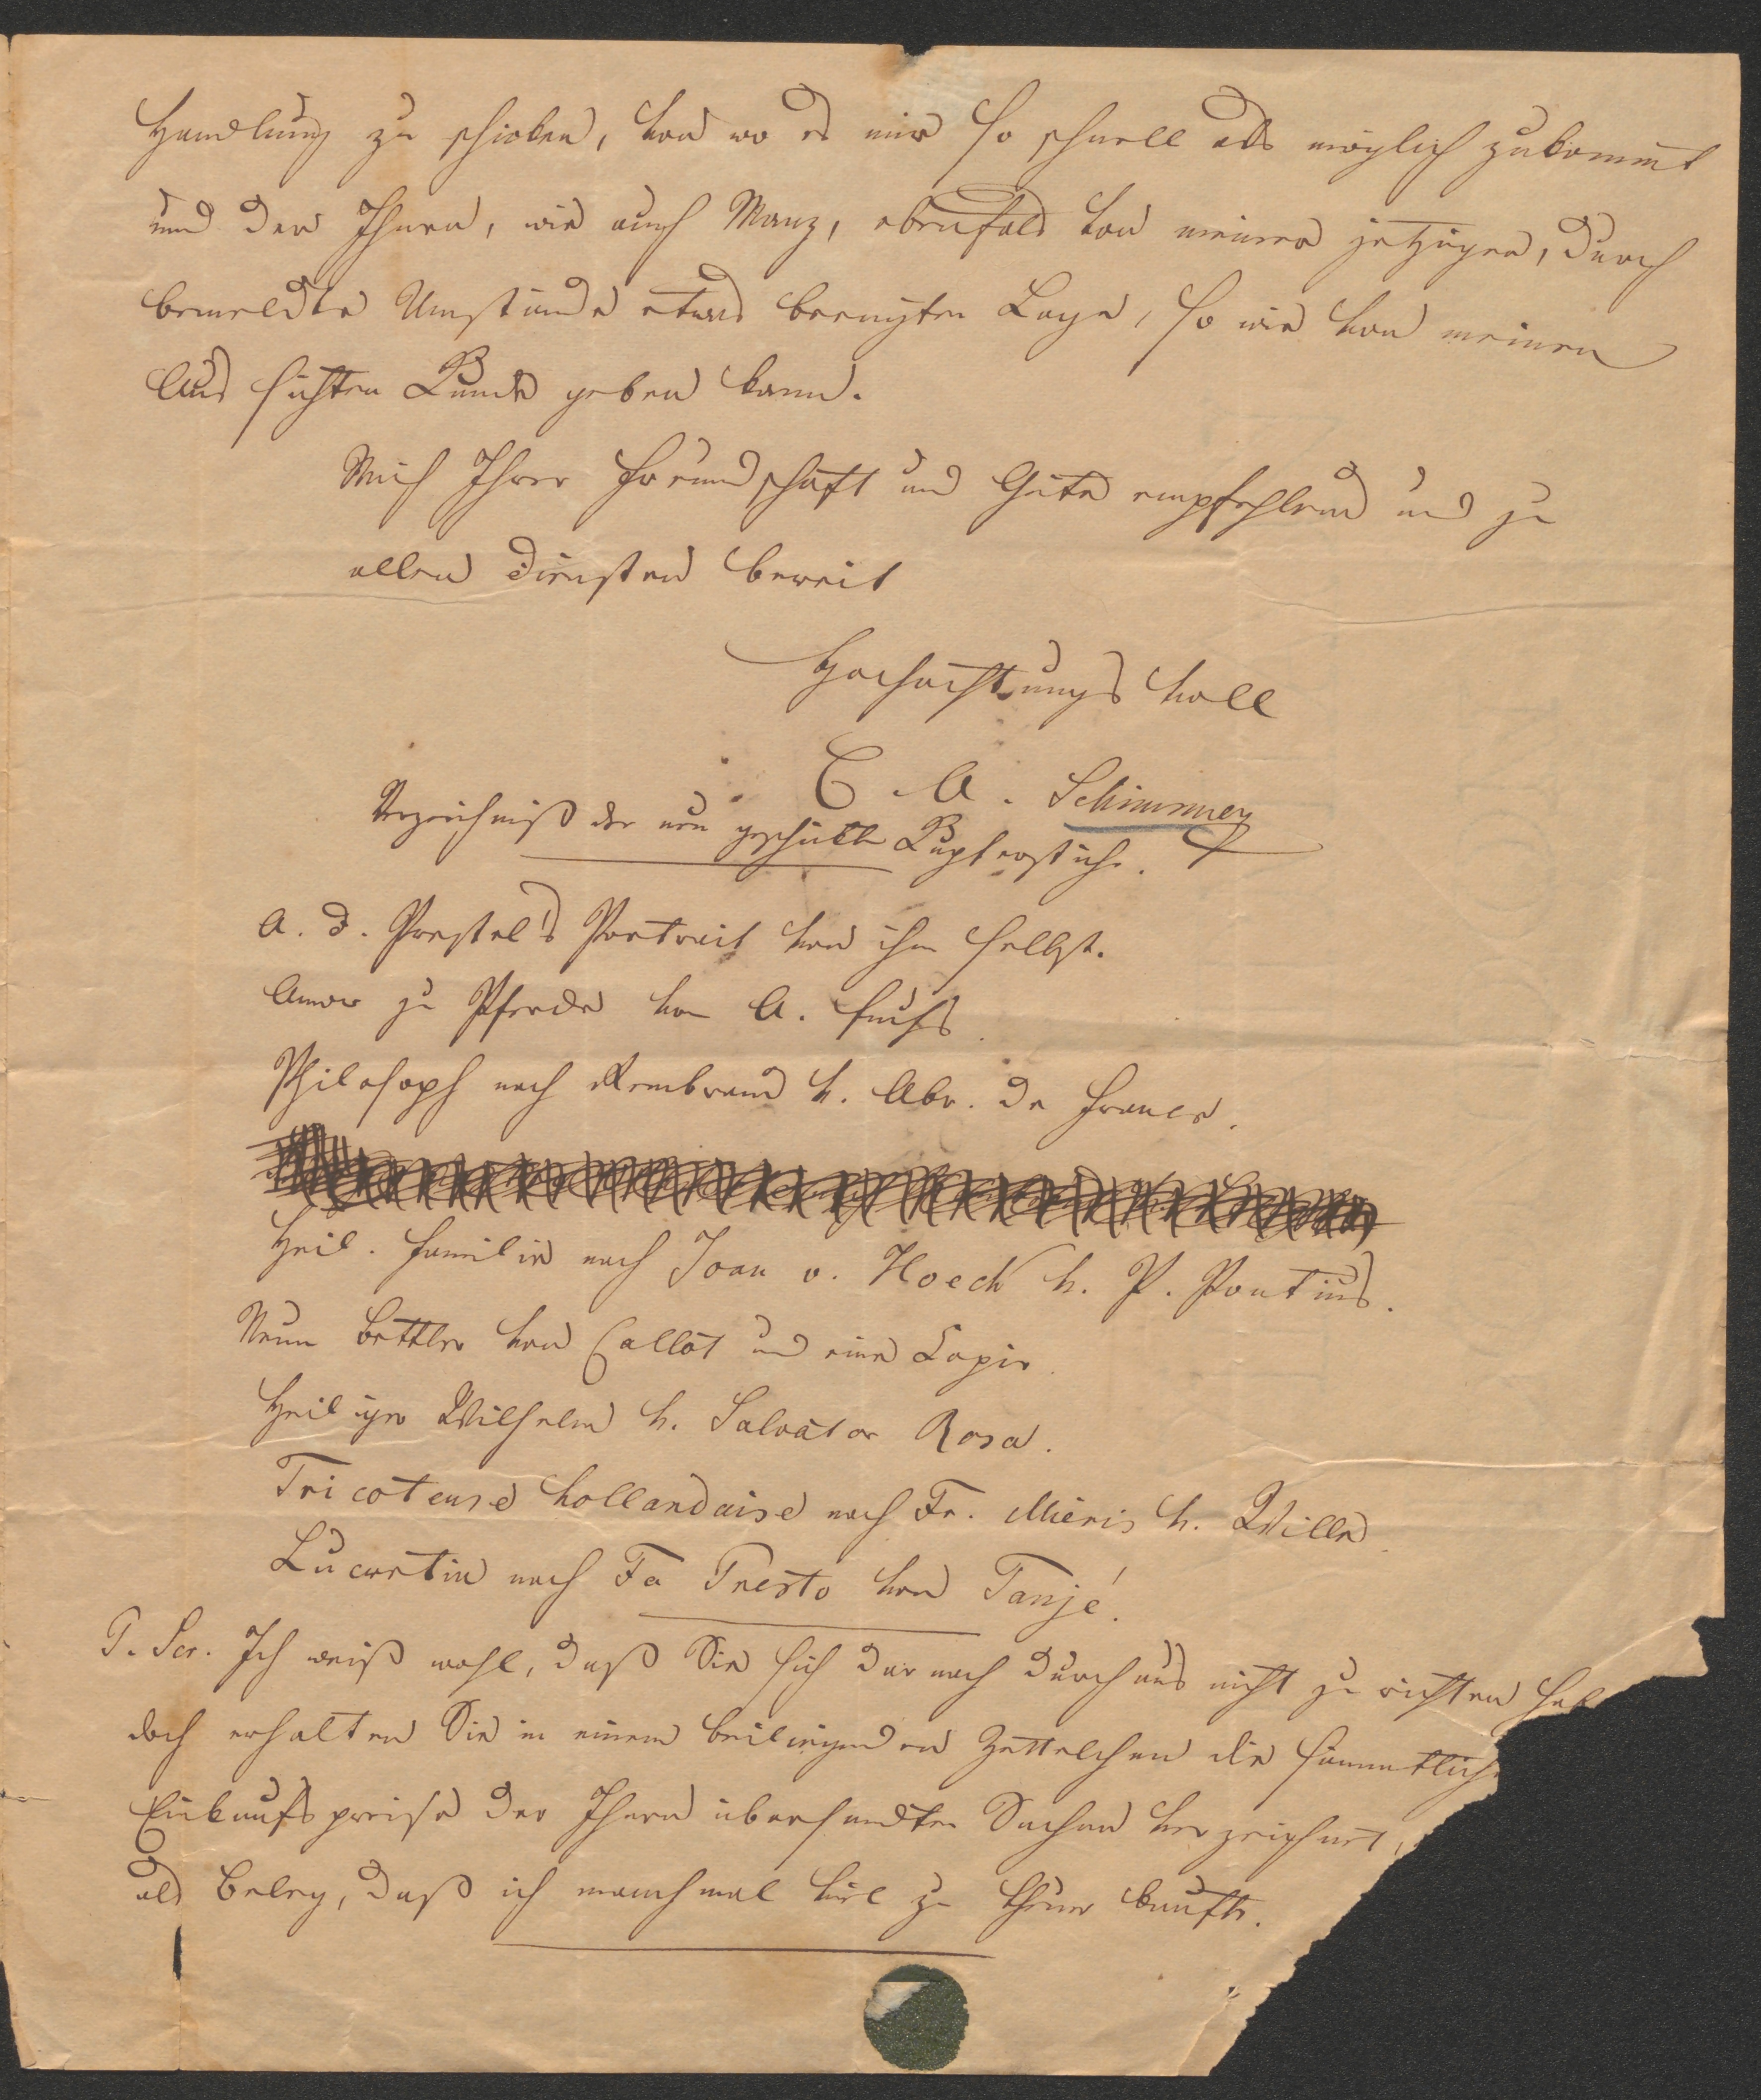 Handlung zu schicken, von wo es mir so schnell als möglich zukommt
und der Ihnen, wie auch Manz, ebenfals von meiner jetzigen, durch
bemeldte Umstände etwas beengten Lage, so wie von meinen
Aus sichten Kunde geben kann.
Mich Ihrer Freundschaft und Güte empfehlend und zu
allen Diensten bereit
Hochachtungsvoll
C. A. Schimmer
Verzeichniß der neu geschickten Kupferstiche.
A. d. Prestel's Portrait von ihm selbst.
Amor zu Pferde von A. Fuchs.
Philosoph nach Rembrand v. Abr. de France.
Heil. Familie nach Joan v. Hoeck v. P. Pontius.
Neun Bettler von Callot und eine Copie.
Heiliger Wilhelm v. Salvator Rosa.
Tricoteuse hollandaise nach Fr. Mieris v. Wille.
Lucretia nach Fa Presto von Tanjé.
P. Scr. Ich weiß wohl, daß Sie sich darnach durchaus nicht zu richten hab
doch erhalten Sie in einem beiliegenden Zettelchen die sämmtliche
Einkaufspreise der Ihnen übersendten Sachen verzeichnet,
als Beleg, daß ich manchmal viel zu theuer kaufte.